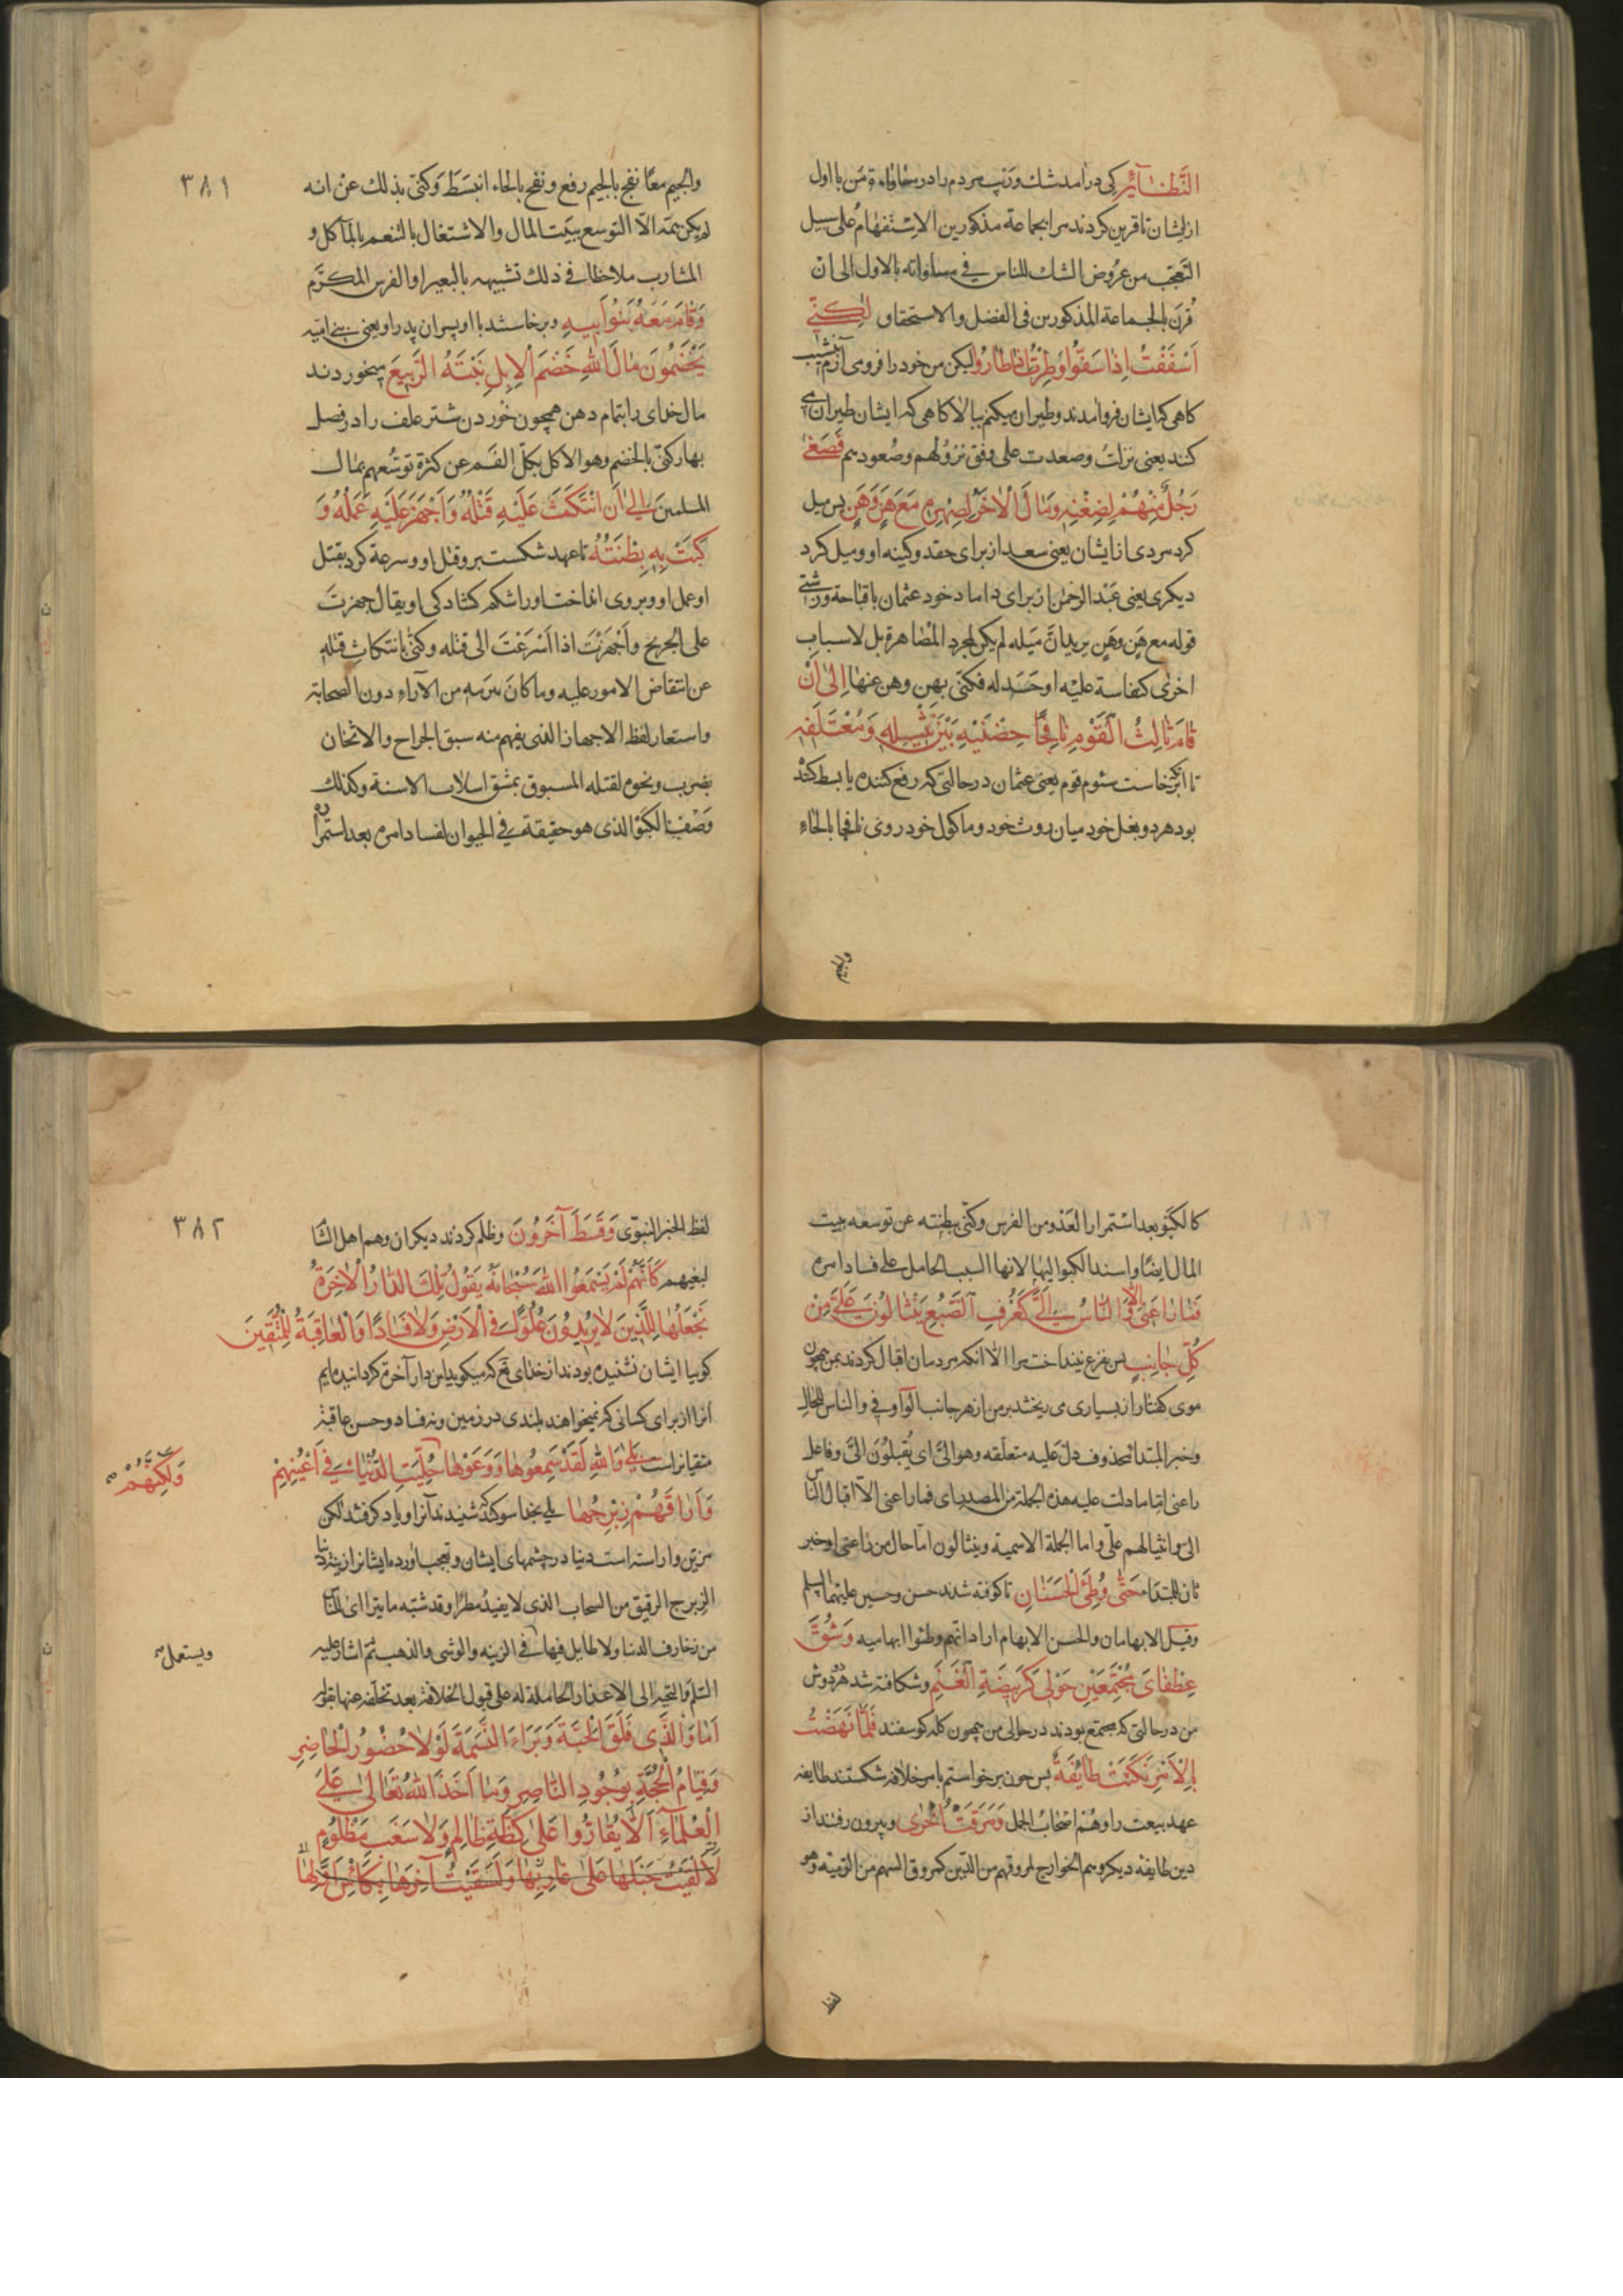 النَّظَائِرِ کی درآمد شك وریب مردم را در مساواة من با اول
از ایشان تا قرین کردند مرا بجماعة مذکورین الاستفهام علی سبیل
التعجب من عروض الشك للناس فی مساواته بالاول الی ان
قُرن بالجماعة المذکورین فی الفضل والاستحقاق لٰكِنّی
اَسْفَفْتُ اِذْ اَسَفُّوا وَطِرْتُ اِذْ طَارُوا لیکن من خود را فرومی آرم بنشیب
کاهی که ایشان فرو آمدند وطیران میکنم ببالا کاهی که ایشان طیران می
کنند یعنی نزلتُ وصعدت علی وفق نزولهم وصعودهم فَصَغیٰ
رَجُلٌ مِنْهُمْ لِضِغْنِهِ وَمَالَ الْاٰخَرُ لِصِهْرِهِ مَعَ هَنٍ وَهَنٍ پس میل
کرد مردی از ایشان یعنی سعد از برای حقد وکینه او ومیل کرد
دیکری یعنی عبدالرحمن از برای داماد خود عثمان با قباحة وزشتی
قوله مع هن وهن یرید انّ میله لم یکن لمجرد المظاهرة بل لاسباب
اخری کنفاسة علیه او حسد له فکنی بهن وهن عنها اِلیٰ اَنْ
قَامَ ثَالِثُ الْقَوْمِ نَافِجًا حِضْنَیْهِ بَیْنَ نَثِیلِهِ وَمُعْتَلَفِهِ
تا انکه برخاست سئوم قوم یعنی عثمان در حالتی که رفع کننده یا بسط کننده
بود هر دو بغل خود میان روث خود وماکول خود روی نافجا بالحاء
والجیم
والجیم معًا نفج بالجیم رفع ونفح بالحاء انبسَطَ وکنی بذلك عن انه
لم یکن همّه الّا التوسع ببیت المال والاشتغال بالتنعم بالمآکل و
المشارب ملاحظا فی ذلك تشبیهه بالبعیر او الفرس المکرّم
وَقَامَ مَعَهُ بَنُو اَبِیهِ وبرخاستند با او پسران پدر او یعنی بنی امیّه
یَخْضِمُونَ مَالَ اللهِ خَضْمَ الْاِبِلِ نَبْتَةَ الرَّبِیعِ میخوردند
مال خدای را بتمام دهن همچون خوردن شتر علف را در فصل
بهار کنّی بالخضم وهو الاکل بکلّ الفم عن کثرة توسّعهم بمال
المسلمین اِلیٰ اَنِ انْتَكَثَ عَلَیْهِ فَتْلُهُ وَاَجْهَزَ عَلَیْهِ عَمَلُهُ وَ
كَبَتْ بِهِ بِطْنَتُهُ تا عهد شکست بروقتل او وسرعة کرد بقتل
او عمل او وبروی انداخت او را شکم کشادکی او یقال جهزت
علی الجریح واَجْهَزْتَ اذا اَسْرَعْتَ الی قتله وکنّی بانتکاث فتله
عن انتقاض الامور علیه وما کان یبرمه من الآراء دون الصحابة
واستعار لفظ الاجهاز الذی یفهم منه سبق الجراح والاثخان
بضرب ونحوه لقتله المسبوق بمشق اسلاب الاسنة وکذلك
وَصْف الکبو الذی هو حقیقة فی الحیوان لفساد امره بعد استمراره
٣٨١
کالکبو بعد استمرار العَدو من الفرس وکنّی ببطنته عن توسعه ببیت
المال ایضًا واسند الکبو الیها لانها السبب الحامل علی فساد امره
فَمَا رَاعَنِی اِلَّا وَالنَّاسُ اِلَیَّ كَعُرْفِ الضَّبُعِ یَنْثَالُونَ عَلَیَّ مِنْ
كُلِّ جَانِبٍ پس بفزع نینداخت مرا الا انکه مردمان اقبال کردند بمن همچون
موی کفتار از بسیاری می ریختند بر من از هر جانب الواو فی والناس للحال
وخبر المبتدا محذوف دلّ علیه متعلّقه وهو الیَّ ای یُقبلُونَ الیَّ وفاعل
راعنی اما ما دلت علیه هذه الجملة من المصدر ای فما راعنی الّا اقبال الناس
الی وانثیالهم علی واما الجملة الاسمیة وینثالون اما حال من راعنی او خبر
ثان للمبتداء حَتّٰی وُطِئَ الْحَسَنَانِ تا کوفته شدند حسن وحسین علیهما السلم
وقیل الابهامان والحسن الابهام اراد انهم وطئوا ابهامیه وَشُقَّ
عِطْفَایَ مُجْتَمِعِینَ حَوْلِی كَرَبِیضَةِ الْغَنَمِ وشکافته شد هر دو دوش
من در حالتی که مجتمع بودند در حوالی من همچون کله کوسفند فَلَمَّا نَهَضْتُ
بِالْاَمْرِ نَكَثَتْ طَائِفَةٌ پس چون برخواستم بامر خلافة شکستند طایفه
عهد بیعت را وهُم اصحابُ الجمل وَمَرَقَتْ اُخْرٰی وبیرون رفتند از
دین طایفه دیکر وهم الخوارج لمروقهم من الدّین کمروق السهم من الرّمیّة وهو
لفظ
لفظ الخبر النبوّی وَقَسَطَ آخَرُونَ وظلم کردند دیکران وهم اهل الشام
لبغیهم كَاَنَّهُمْ لَمْ یَسْمَعُوا اللهَ سُبْحَانَهُ یَقُولُ تِلْكَ الدَّارُ الْاٰخِرَةُ
نَجْعَلُهَا لِلَّذِینَ لَا یُرِیدُونَ عُلُوًّا فِی الْاَرْضِ وَلَا فَسَادًا وَالْعَاقِبَةُ لِلْمُتَّقِینَ
کوییا ایشان نشنیده بودند از خدای تع که میکوید این دار آخرة کردانیده ایم
انرا از برای کسانی که نمیخواهند بلندی در زمین ونه فساد وحسن عاقبة
متقیانراست بَلیٰ وَاللهِ لَقَدْ سَمِعُوهَا وَوَعَوْهَا حُلِّیَتِ الدُّنْیَا فِی اَعْیُنِهِمْ
وَلٰكِنَّهُمْ
وَرَاقَهُمْ زِبْرِجُهَا بلی بخدا سوکند که شنیدند آنرا ویاد کرفتند لکن
مزیّن واراسته است دنیا در چشمهای ایشان وبتعجب آورده ایشانرا زینة دنیا
الزبرج الرقیق من السحاب الذی لا یفید مطرًا وقد شبّه ما یترا ای للناس
من زخارف الدنیا ولا طایل فیها فی الزینه والوشی والذهب ثم اشار علیه
ویستعمل
السّلم والتحیة الی الاعذار الحاملة له علی قبول الخلافة بعد تخلّفه عنها بقوله
اَمَا وَالَّذِی فَلَقَ الْحَبَّةَ وَبَرَاءَ النَّسَمَةَ لَوْلَا حُضُورُ الْحَاضِرِ
وَقِیَامُ الْحُجَّةِ بِوُجُودِ النَّاصِرِ وَمَا اَخَذَ اللهُ تَعَالیٰ عَلَی
الْعُلَمَآءِ اَلَّا یُقَارُّوا عَلیٰ كِظَّةِ ظَالِمٍ وَلَا سَغَبِ مَظْلُومٍ
لَاَلْقَیْتُ حَبْلَهَا عَلیٰ غَارِبِهَا وَلَسَقَیْتُ آخِرَهَا بِكَاْسِ اَوَّلِهَا
٣٨٢